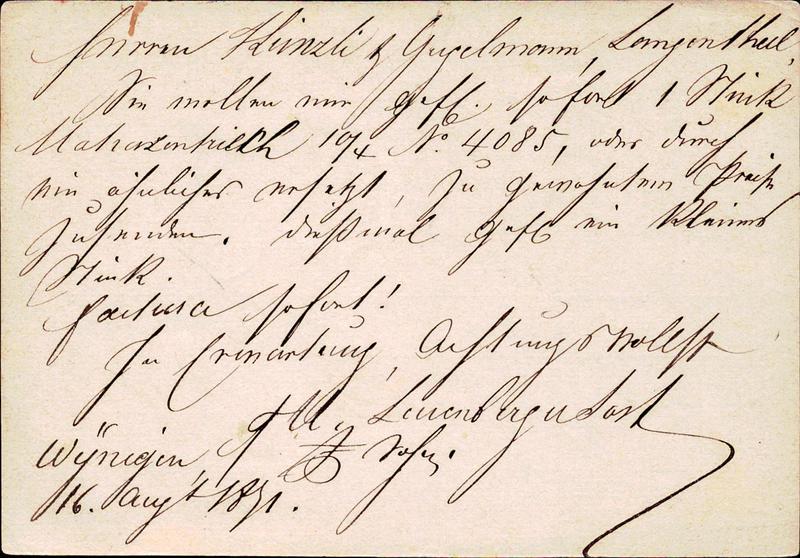 Herren Künzli & Gugelmann, Langenthal,
Sie wollen mir gefl. sofort 1 Stück
Matrazendrilch 10/4 No. 4085, oder durch
ein ähnliches ersetzt, zu gewohntem Preise
zusenden. dießmal gefl ein kleines
Stück.
factura sofort!
In Erwartung, Achtungsvollst
Leuenberger
Sohn.
Wynigen,
16. Augt 1891.